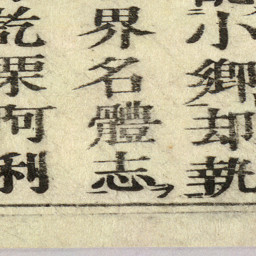 小鄉却執
界名體志
乾栗阿利